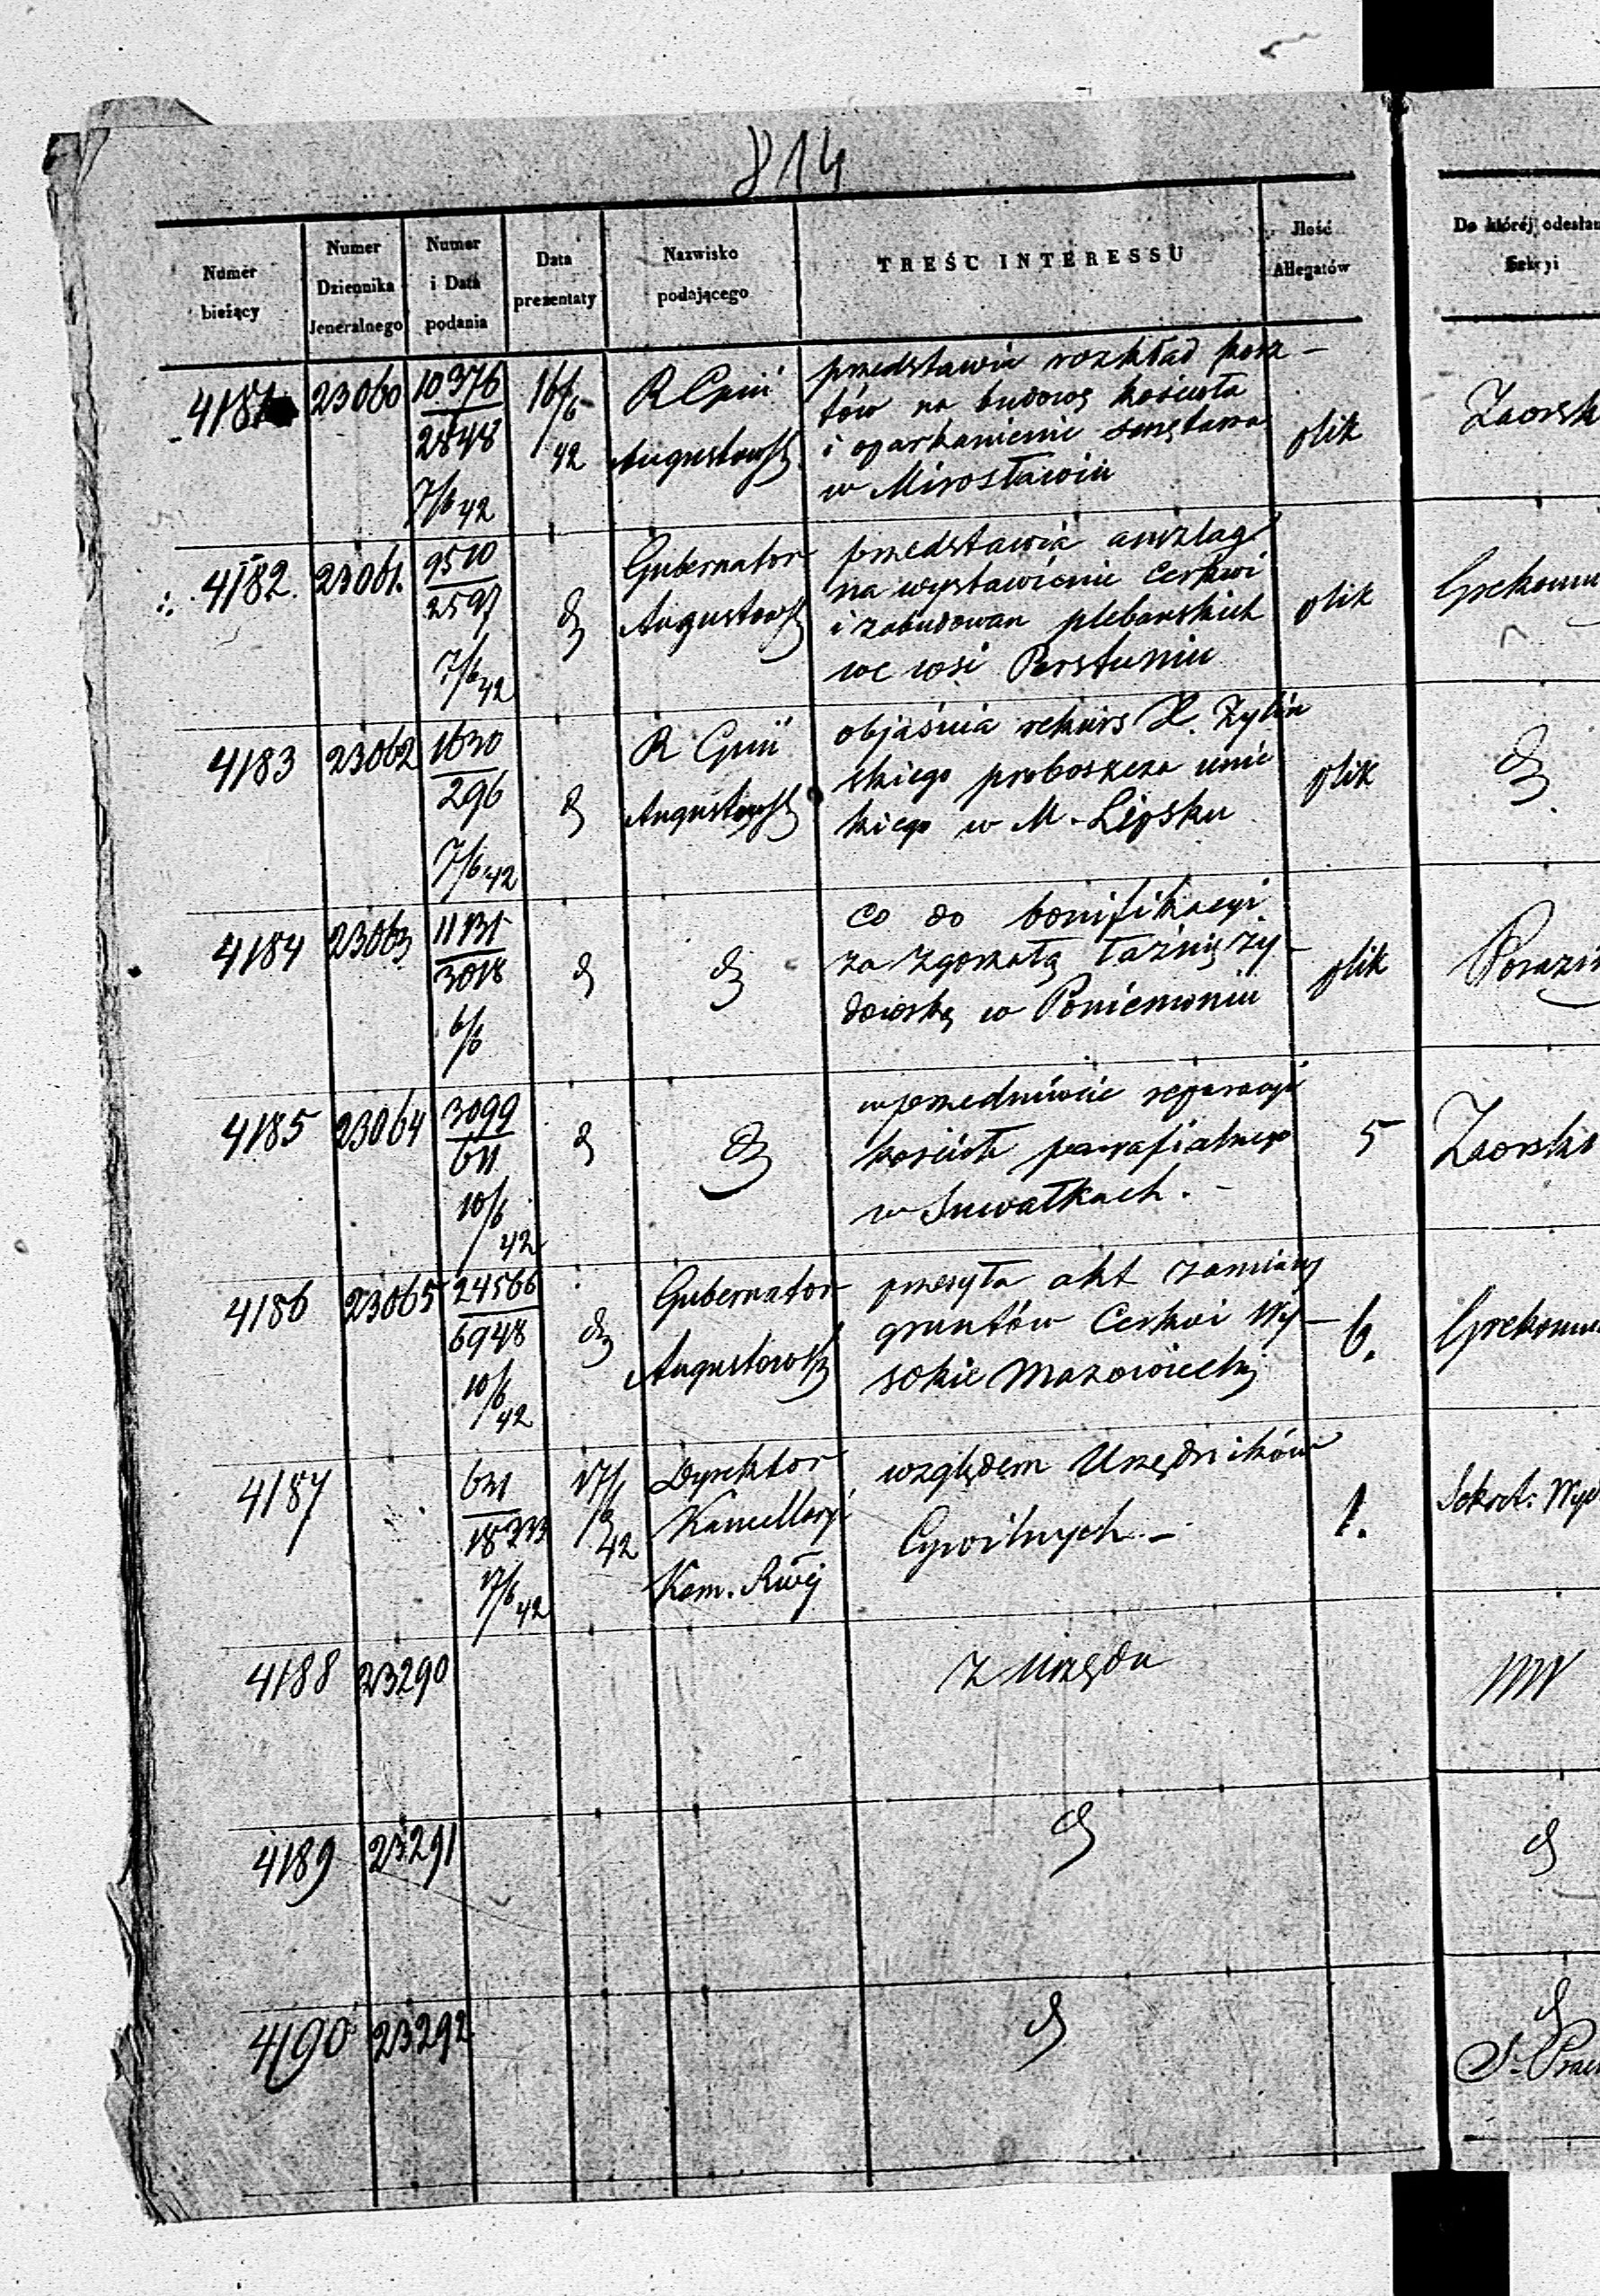 814
Numer bieżący
Numer Dziennika Jeneralnego
Numer i Data podania
Data prezentaty
Nazwisko podającego
TREŚC INTERESSU
Ilość Allegatów
Do któréj odesłan
Sekcyi
4181 23060 10376 / 2848 7/6 42 16/6 42 R Gnii Augustowski
przedstawia rozkład kosz-
tów na budowę kościoła
i oparkanienie cmętarza
w Mirosławiu
plik
Zaorsk
4182. 23061. 9510 / 2597 7/6 42 Gubernator Augustowski
przedstawia anszlag
na wystawienie cerkwi
i zabudowan plebanskich
we wsi Perstuniu
plik
4183 23062 1630 / 296 7/6 42 R Gnii Augustowski
objaśnia rekurs X. Zylin
skiego proboszcza unic
kiego w M. Lipsku
plik
4184 23063 3018 6/6
co do bonifikacyi
za zgorzałą łaźnię ży-
dowską w Poniemoniu
plik
4185 23064 3099 / 611 10/6 42
w przedmiocie reparacyi
kościoła parafialnego
w Suwałkach. -
5
Zaorski
4186 23065 24566 / 6948 10/6 42 Gubernator Augustowski
przesyła akt zamiany
gruntów Cerkwi Wy-
sokie Mazowieckiej
6.
4187 631 17/6 42 17/6 42 Dyrektor Kancellaryi Kom. Rwéj
względem Urzędników
Cywilnych. -
1.
Sekret: Wyd
4188 23290
z Urzędu
4189 23291
4190 23292